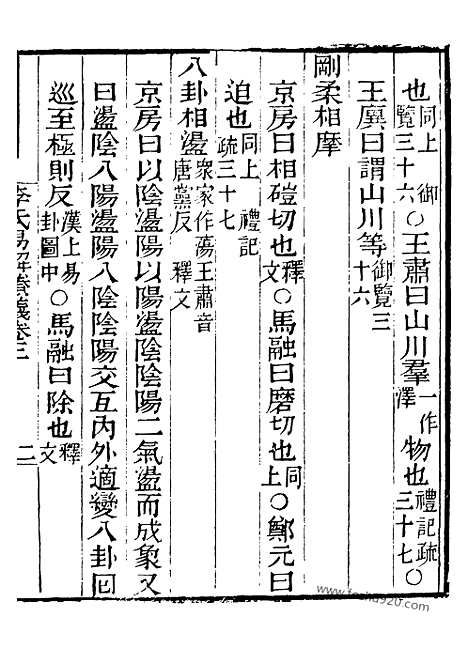 也同上 御覽三十六○王肅曰山川羣一作澤物也禮記疏三十七○
王廙曰謂山川等御覽三十六
剛柔相摩
京房曰相磑切也釋文○馬融曰磨切也同上○鄭元曰
迫也同上 禮記疏三十七
八卦相盪衆家作蕩王肅音唐黨反 釋文
京房曰以陰盪陽以陽盪陰陰陽二氣盪而成象又
曰盪陰入陽盪陽入陰陰陽交互內外適變八卦囘
巡至極則反漢上易卦圖中○馬融曰除也釋文
李氏易解賸義卷三 二